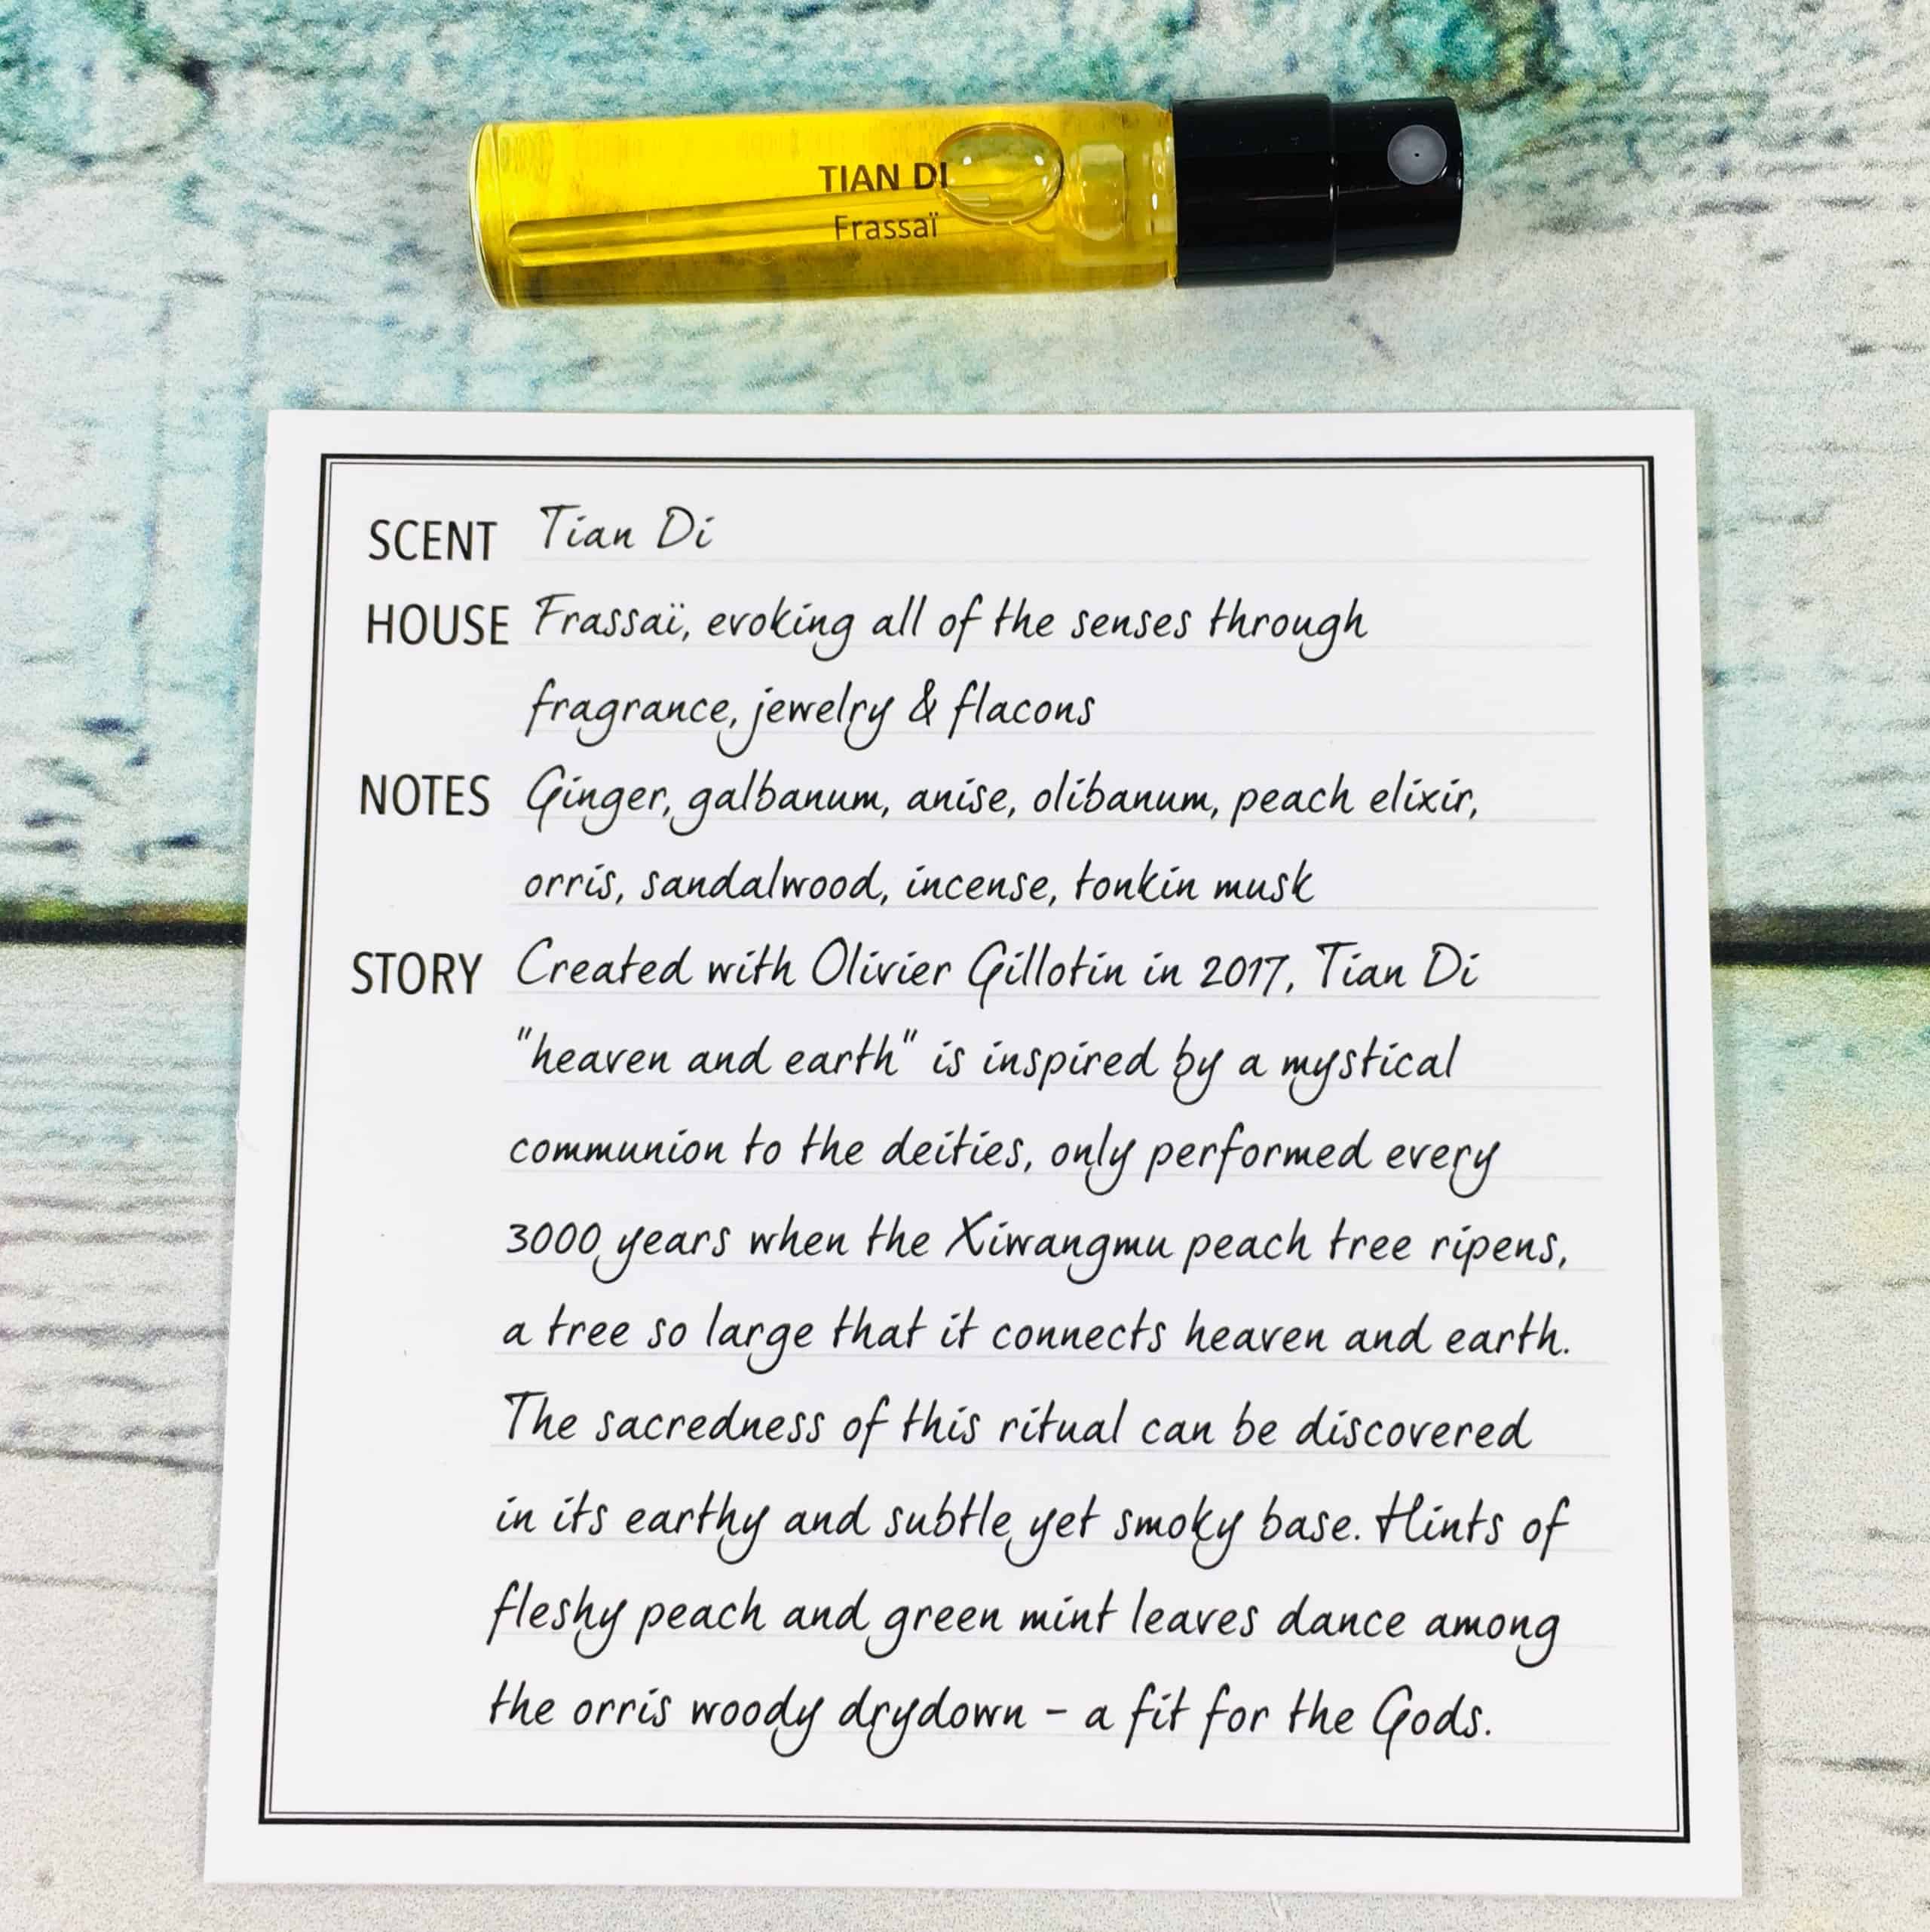 TIAN DI
Frassaï
SCENT Tian Di
HOUSE Frassaï, evoking all of the senses through
fragrance, jewelry & flacons
NOTES Ginger, galbanum, anise, olibanum, peach elixir,
orris, sandalwood, incense, tonkin musk
STORY Created with Olivier Gillotin in 2017, Tian Di
"heaven and earth" is inspired by a mystical
communion to the deities, only performed every
3000 years when the Xiwangmu peach tree ripens,
a tree so large that it connects heaven and earth.
The sacredness of this ritual can be discovered
in its earthy and subtle yet smoky base. Hints of
fleshy peach and green mint leaves dance among
the orris woody drydown - a fit for the Gods.